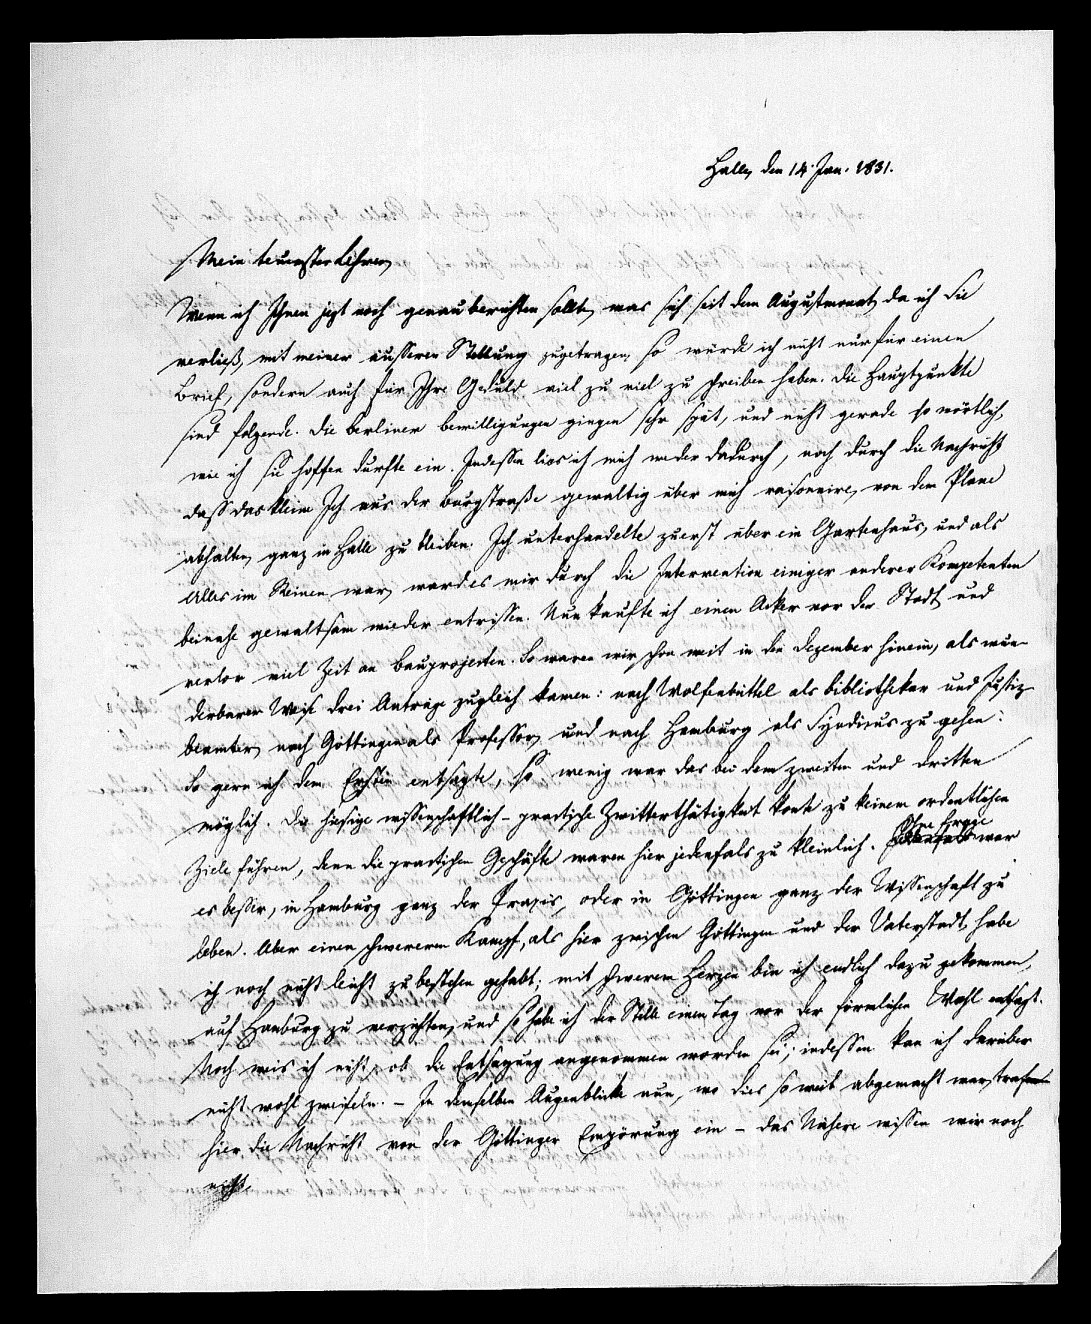 Halle, den 14. Jan. 1831.
Mein teuerster Lehrer,
Wenn ich Ihnen jetzt noch genau berichten sollte, was sich seit dem Augustmonat, da ich Sie
verließ, mit meiner äusseren Stellung zugetragen, so würde ich nicht nur für einen
Brief, sondern auch für Ihre Geduld viel zu viel zu schreiben haben. Die Hauptpunkte
sind folgende. Die Berliner Bewilligungen gingen sehr spät, und nicht gerade so wörtlich,
wie ich sie hoffen durfte ein. Indessen lies ich mich weder dadurch, noch durch die Nachricht
dass das kleine Ich aus der Burgstraße gewaltig über mich raisonnire, von dem Plane
abhalten, ganz in Halle zu bleiben. Ich unterhandelte zuerst über ein Gartenhaus, und als
Alles im Reinen war, ward es mir durch die Intervention einiger anderer Kompetenten
beinahe gewaltsam wieder entrissen. Nun kaufte ich einen Acker vor der Stadt, und
verlor viel Zeit an Bauprojecten. So waren wir schon weit in den Dezember hinein, als wun-
derbarer Weise drei Anträge zugleich kamen: nach Wolfenbüttel als Bibliothekar und Justiz-
beamter, nach Göttingen als Professor, und nach Hamburg als Syndicus zu gehen:
So gern ich dem Ersten entsagte, so wenig war das bei dem zweiten und dritten
möglich. Die hiesige wissenschaftlich-practische Zwitterthätigkeit konte zu keinem ordentlichen
Ziele führen, denn die practischen Geschäfte waren hier jedenfals zu kleinlich. Ohne Frage war
es besser, in Hamburg ganz der Praxis, oder in Göttingen ganz der Wissenschaft zu
leben. Aber einen schwereren Kampf, als hier zwischen Göttingen und der Vaterstadt, habe
ich noch nicht leicht zu bestehen gehabt; mit schwerem Herzen bin ich endlich dazu gekommen,
auf Hamburg zu verzichten, und so habe ich der Stelle einen Tag vor der förmlichen Wahl entsagt.
Noch weis ich nicht, ob die Entsagung angenommen worden sei; indessen kan ich darüber
nicht wohl zweifeln. – In demselben Augenblicke nun, wo dies so weit abgemacht war, trafen
hier die Nachricht von der Göttinger Empörung ein – das Nähere wissen wir noch
nicht.